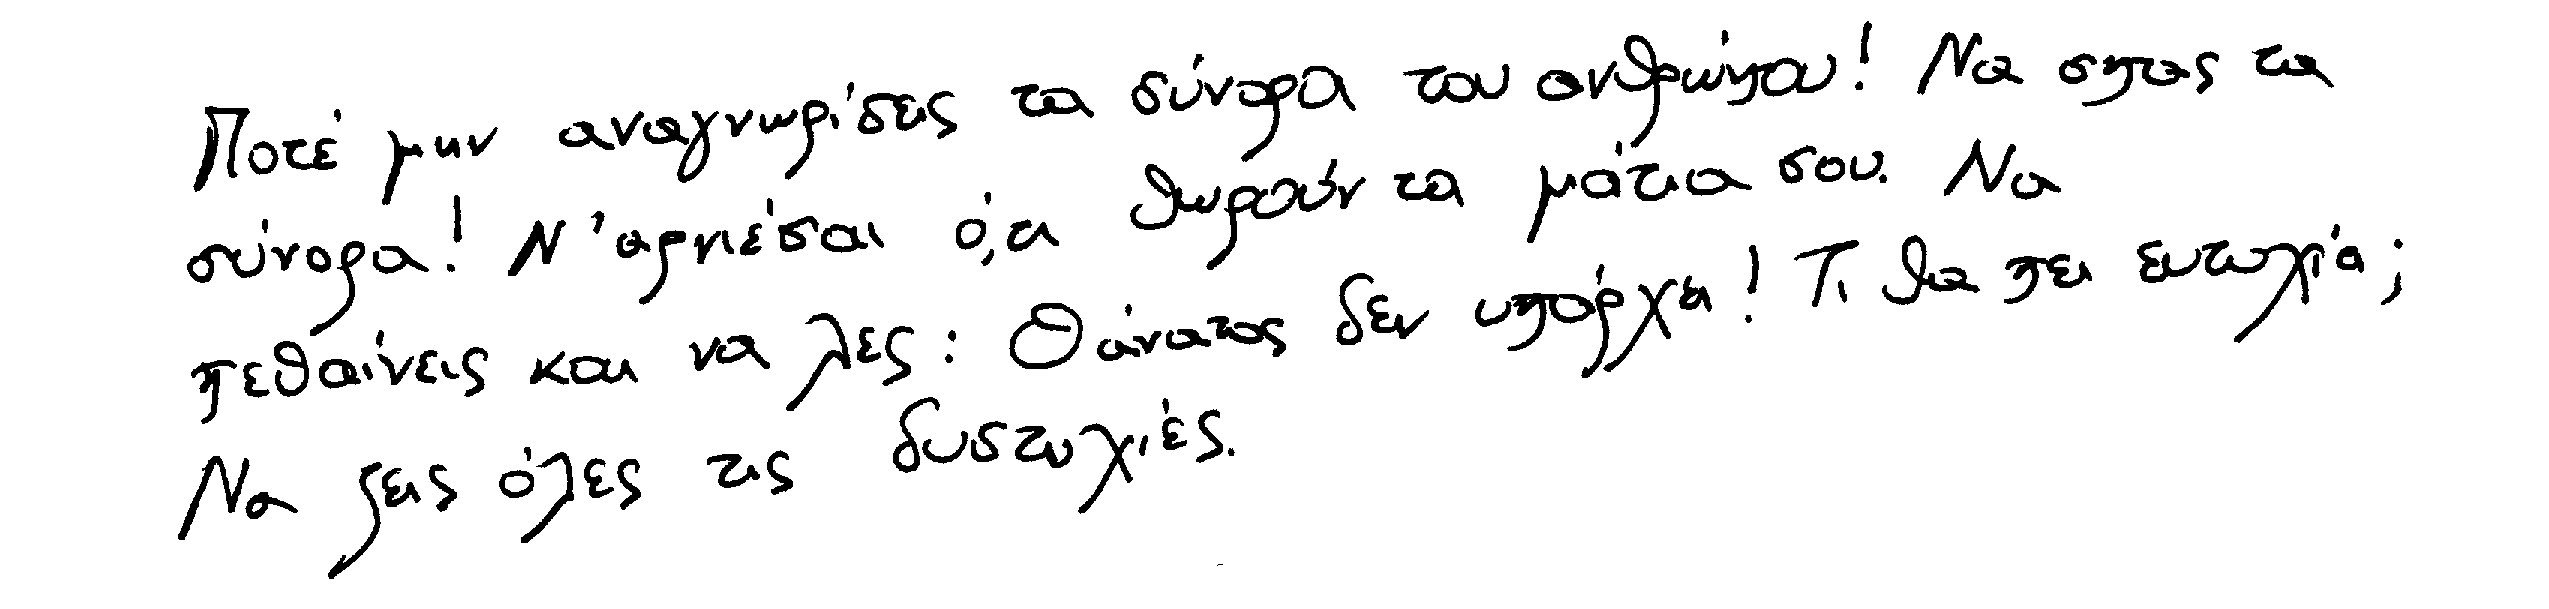 Ποτέ μην αναγνωρίσεις τα σύνορα του ανθρώπου! Να σπας τα
σύνορα! Ν'αρνιέσαι ό,τι θωρούν τα μάτια σου. Να
πεθαίνεις και να λες: Θάνατος δεν υπάρχει! Τι θα πει ευτυχία;
Να ζεις όλες τις δυστυχίες.